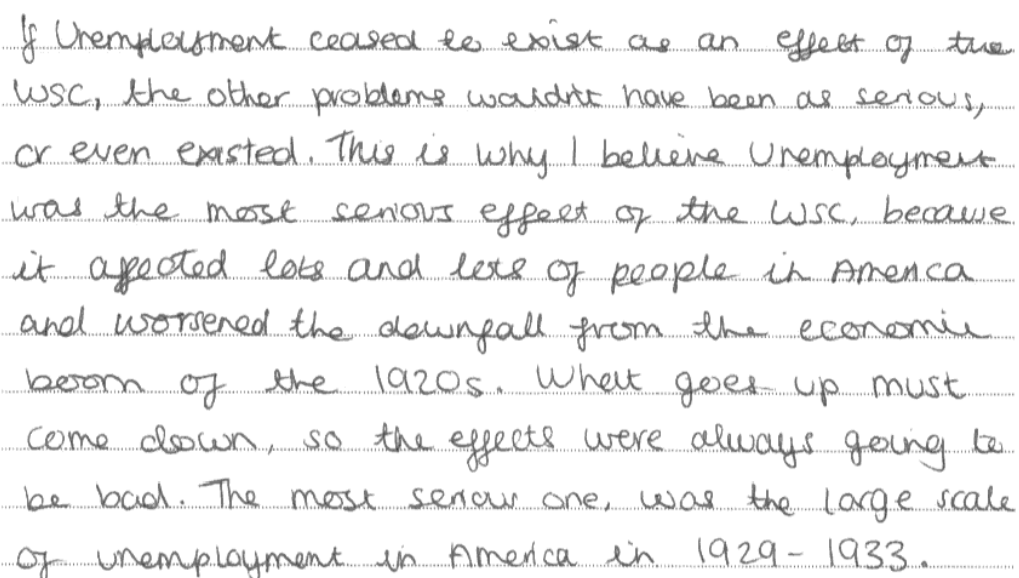 If Unemployment ceased to exist as an effect of the
WSC, the other problems wouldn't have been as serious,
or even existed. This is why I believe Unemployment
was the most serious effect of the WSC, because
it affected lots and lots of people in America
and worsened the downfall from the economic
boom of the 1920s. What goes up must
come down, so the effects were always going to
be bad. The most serious one, was the large scale
of unemployment in America in 1929 - 1933.